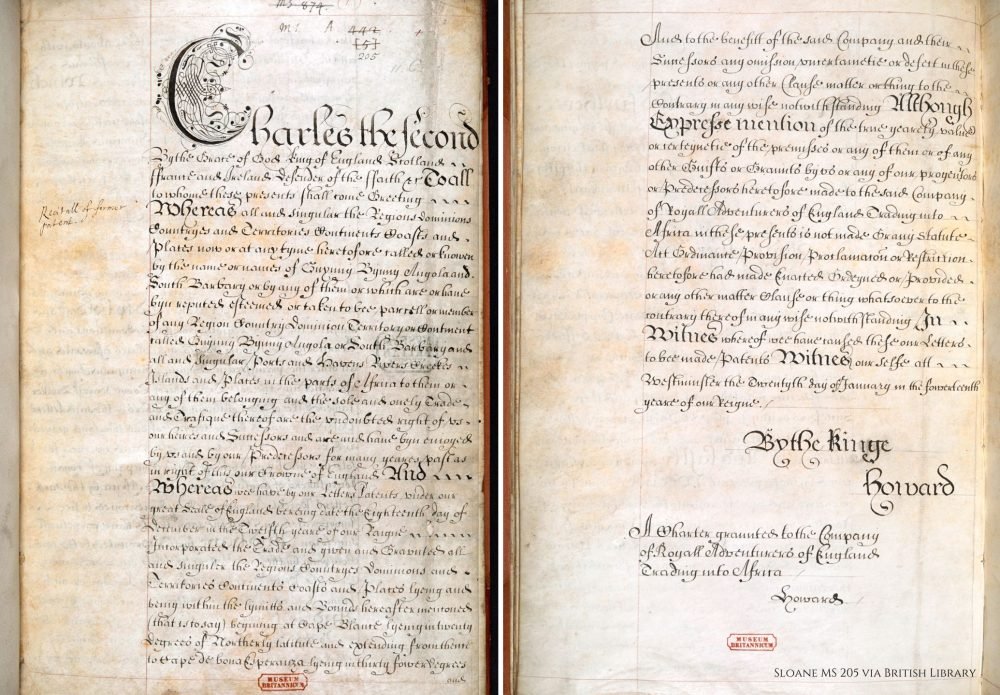 MS 874
MS. A 442
151
205
Charles the second
By the Grace of God King of England Scotland
ffrance and Ireland Defender of the ffaith &c To all
to whome these presents shall come Greeting
Recitall of former
patent
Whereas all and singular the Regions Dominions
Countryes and Territories Continents Coasts and
Places now or at any tyme heretofore called or knowen
by the name or names of Guynny Bynny Angola and
South Barbary or by any of them or which are or have
byn reputed esteemed or taken to bee parcell or member
of any Region Country Dominion Territory or Continent
called Guynny Bynny Angola or South Barbary and
all and singular Ports and Havens Rivers Creekes
Islands and Places in the parts of Africa to them or
any of them belonging and the sole and onely Trade
and Trafique thereof are the undoubted right of us
our heires and Successors and are and have byn enioyed
by us and by our Predecessors for many yeares past as
in right of this our Crowne of England And
Whereas wee have by our Letters Patents under our
great Seale of England beareing date the Eighteenth day of
December in the Twelfth yeare of our Raigne
Incorporated the Trade and given and Graunted all
and singuler the Regions Countryes Dominions and
Territories Continents Coasts and Places lyeing and
being within the lymitts and Bounds hereafter mencioned
(that is to say) begining at Cape Blanke lyeing in twenty
degrees of Northerly latitude and extending from thence
to Cape de bona Esperanza lyeing in thirty fower degrees
and
MUSEUM
BRITANNICUM
And to the benefitt of the said Company and their
Successors any omission uncertainetie or defect in these
presents or any other Clause matter or thing to the
Contrary in any wise notwithstanding Although
Expresse mention of the true yearely value
or certeynetie of the premisses or any of them or of any
other Guifts or Graunts by us or any of our progenitors
or Predecessors heretofore made to the said Company
of Royall Adventurers of England Trading into
Africa in these presents is not made Or any Statute
Act Ordinance Provision Proclamacon or Restriction
heretofore had made Enacted Ordeyned or Provided
or any other matter Clause or thing whatsoever to the
contrary thereof in any wise notwithstanding In
Witnes whereof wee have caused these our Letters
to bee made Patents Witnes our selfe att
Westminster the Twentyth day of January in the fowerteenth
yeare of our Reigne.
By the Kinge
Howard
A Charter graunted to the Company
of Royall Adventurers of England
Trading into Africa
Howard
MUSEUM
BRITANNICUM
SLOANE MS 205 VIA BRITISH LIBRARY